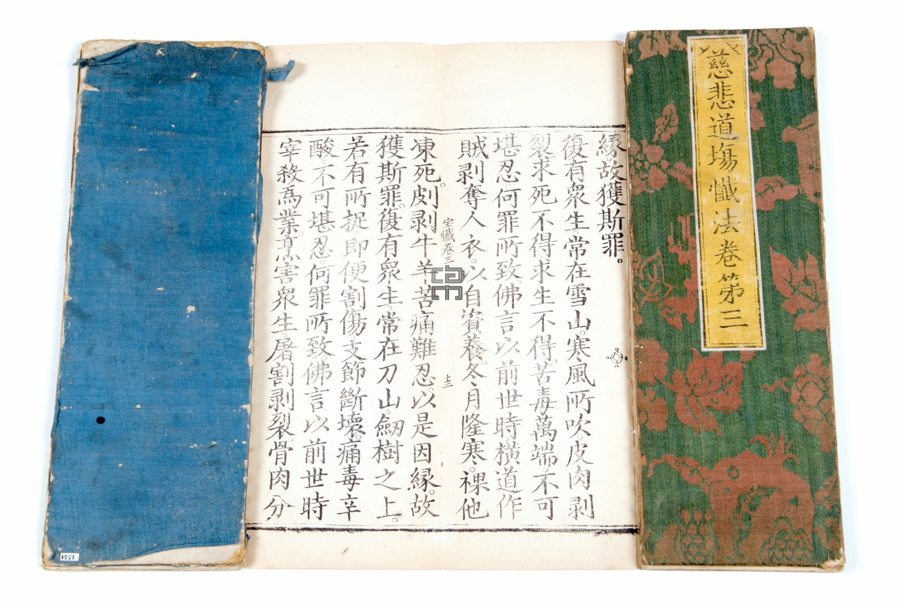 慈悲道塲懺法卷第三
緣故獲斯罪。
復有眾生常在雪山。寒風所吹皮肉剥
裂求死不得求生不得苦毒萬端不可
堪忍何罪所致佛言以前世時橫道作
賊剥奪人衣。以自資養。冬月隆寒。裸他
懺卷三
凍死。㓟剥牛羊苦痛難忍。以是因緣故
獲斯罪。復有眾生常在刀山。劒樹之上。
若有所捉即便割傷支節斷壞。痛毒辛
酸不可堪忍何罪所致佛言以前世時
宰殺為業烹害眾生屠割剥裂骨肉分